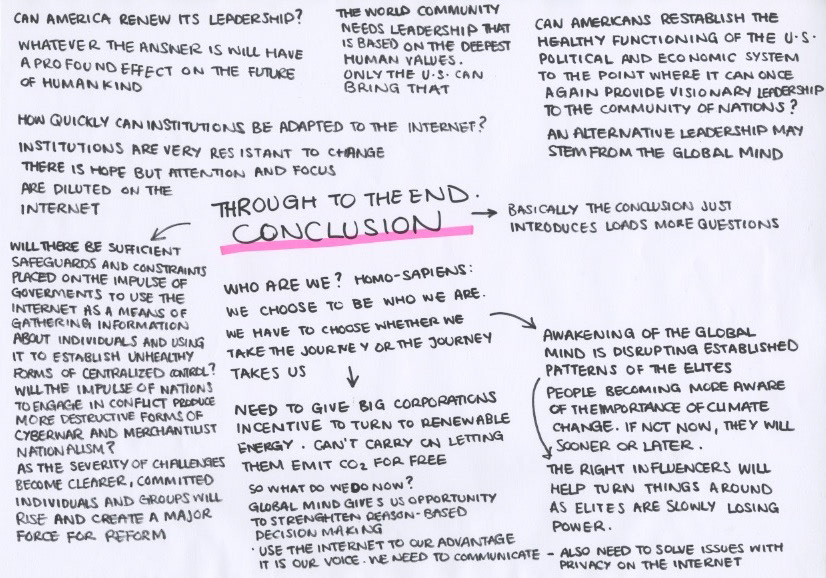 CAN AMERICA RENEW ITS LEADERSHIP?
WHATEVER THE ANSNER IS WILL HAVE
A PROFOUND EFFECT ON THE FUTURE
OF HUMANKIND
THE WORLD COMMUNITY
NEEDS LEADERSHIP THAT
IS BASED ON THE DEEPEST
HUMAN VALUES.
ONLY THE U.S. CAN
BRING THAT
CAN AMERICANS RESTABLISH THE
HEALTHY FUNCTIONING OF THE U.S.
POLITICAL AND ECONOMIC SYSTEM
TO THE POINT WHERE IT CAN ONCE
AGAIN PROVIDE VISIONARY LEADERSHIP
TO THE COMMUNITY OF NATIONS?
AN ALTERNATIVE LEADERSHIP MAY
STEM FROM THE GLOBAL MIND
HOW QUICKLY CAN INSTITUTIONS BE ADAPTED TO THE INTERNET?
INSTITUTIONS ARE VERY RESISTANT TO CHANGE
THERE IS HOPE BUT ATTENTION AND FOCUS
ARE DILUTED ON THE
INTERNET
THROUGH TO THE END.
CONCLUSION
BASICALLY THE CONCLUSION JUST
INTRODUCES LOADS MORE QUESTIONS
WILL THERE BE SUFFICIENT
SAFEGUARDS AND CONSTRAINTS
PLACED ON THE IMPULSE OF
GOVERMENTS TO USE THE
INTERNET AS A MEANS OF
GATHERING INFORMATION
ABOUT INDIVIDUALS AND USING
IT TO ESTABLISH UNHEALTHY
FORMS OF CENTRALIZED CONTROL?
WILL THE IMPULSE OF NATIONS
TO ENGAGE IN CONFLICT PRODUCE
MORE DESTRUCTIVE FORMS OF
CYBERWAR AND MERCHANTILIST
NATIONALISM?
AS THE SEVERITY OF CHALLENGES
BECOME CLEARER, COMMITTED
INDIVIDUALS AND GROUPS WILL
RISE AND CREATE A MAJOR
FORCE FOR REFORM
WHO ARE WE? HOMO-SAPIENS:
WE CHOOSE TO BE WHO WE ARE.
WE HAVE TO CHOOSE WHETHER WE
TAKE THE JOURNEY OR THE JOURNEY
TAKES US
NEED TO GIVE BIG CORPORATIONS
INCENTIVE TO TURN TO RENEWABLE
ENERGY. CAN'T CARRY ON LETTING
THEM EMIT CO2 FOR FREE
SO WHAT DO WE DO NOW?
GLOBAL MIND GIVES US OPPORTUNITY
TO STRENGHTEN REASON-BASED
DECISION MAKING
· USE THE INTERNET TO OUR ADVANTAGE
IT IS OUR VOICE. WE NEED TO COMMUNICATE
AWAKENING OF THE GLOBAL
MIND IS DISRUPTING ESTABLISHED
PATTERNS OF THE ELITES
PEOPLE BECOMING MORE AWARE
OF THE IMPORTANCE OF CLIMATE
CHANGE. IF NOT NOW, THEY WILL
SOONER OR LATER.
THE RIGHT INFLUENCERS WILL
HELP TURN THINGS AROUND
AS ELITES ARE SLOWLY LOSING
POWER.
- ALSO NEED TO SOLVE ISSUES WITH
PRIVACY ON THE INTERNET